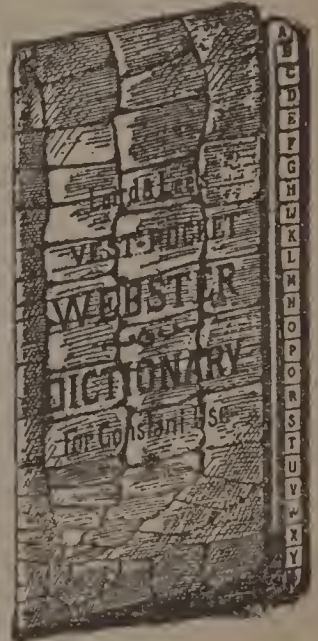 Laird & Lee's
VEST-POCKET
WEBSTER
DICTIONARY
For Constant Use
A
B
C
D
E
F
G
H
IJ
K
L
M
N
O
P
Q
R
S
T
U
V
X
Y